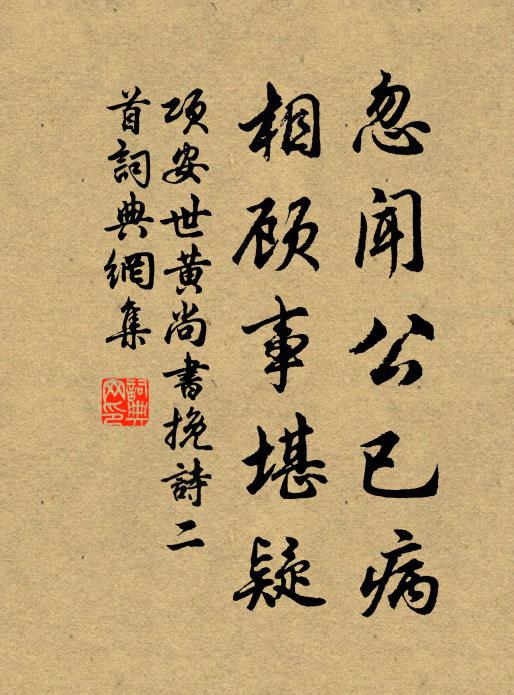 忽闻公已病
相顾事堪疑
项安世黄尚書挽詩二
首詞典網集
詞典